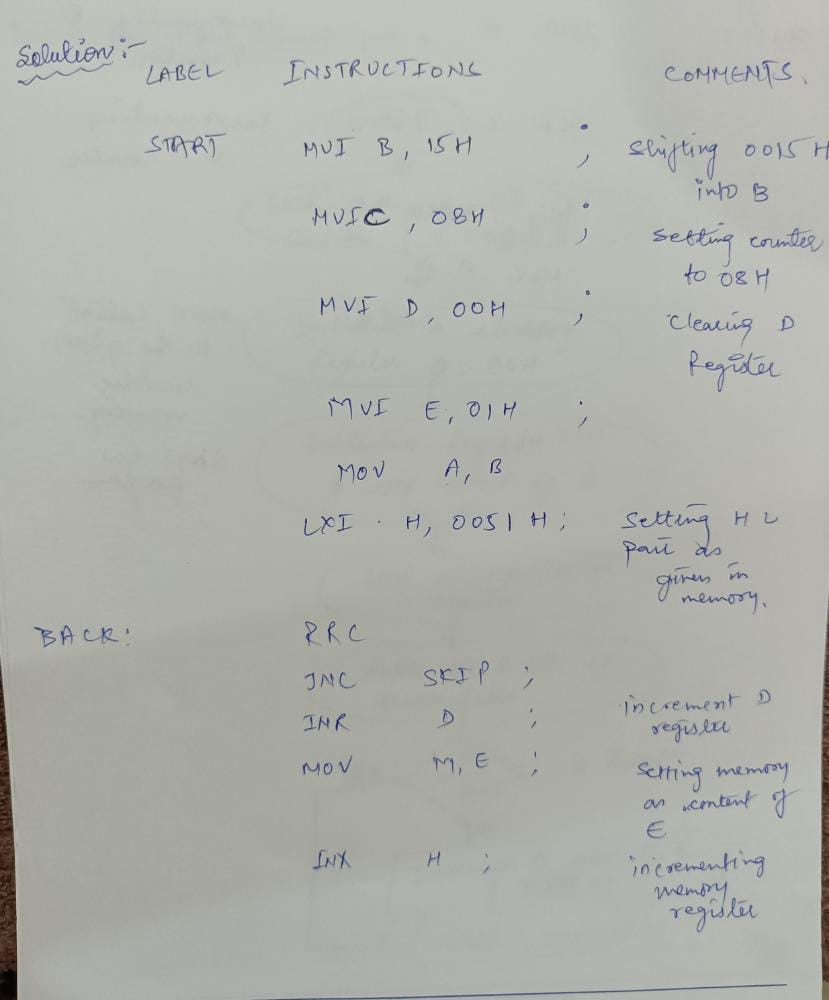 Solution :-
LABEL INSTRUCTIONS COMMENTS.
START MVI B, 15H ; Shifting 0015 H
into B
MVI C, 08H ; Setting counter
to 08H
MVI D, 00H ; Clearing D
Register
MVI E, 01H ;
MOV A, B
LXI H, 0051 H ; Setting H L
part as
given in
memory.
BACK: RRC
JNC SKIP ;
INR D ; increment D
register
MOV M, E ; Setting memory
as content of
E
INX H ; incrementing
memory
register